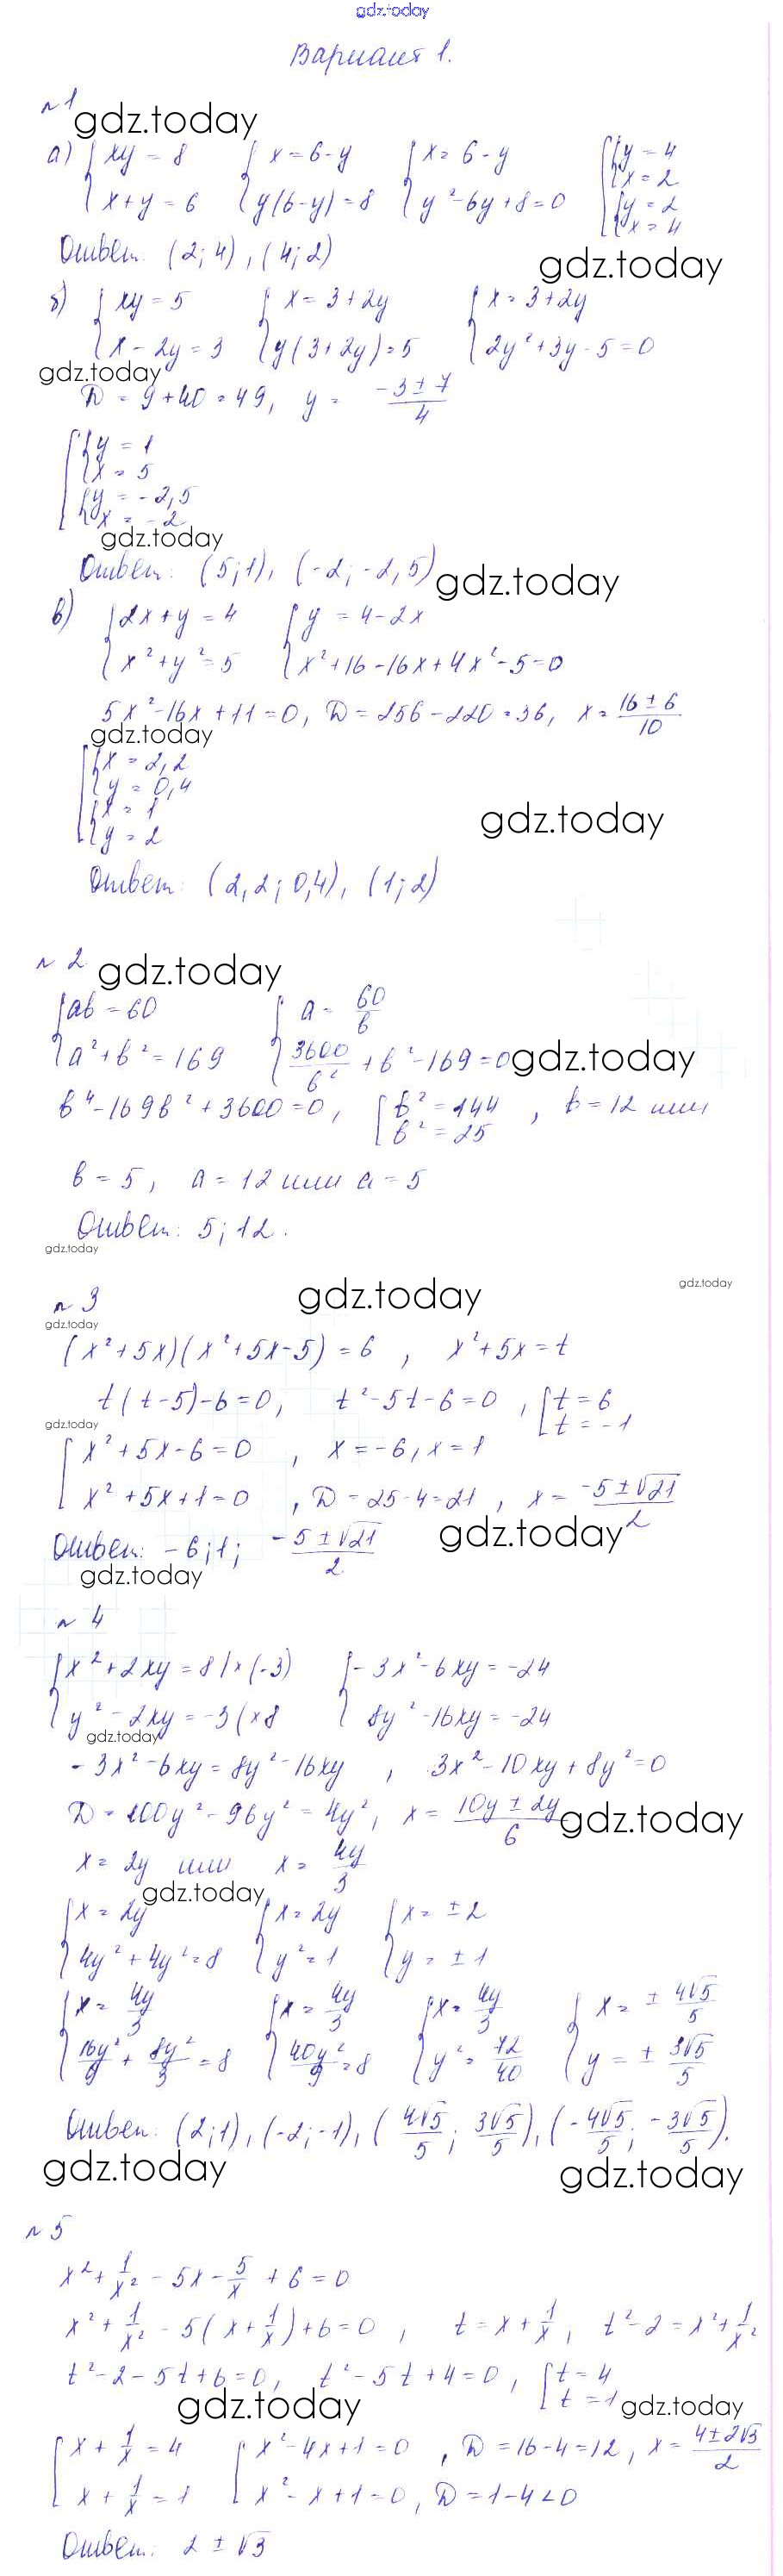 gdz.today
Вариант 1.
№1 gdz.today
а) { xy = 8 { x = 6 - y { x = 6 - y [ { y = 4
{ x + y = 6 { y(6-y) = 8 { y² - 6y + 8 = 0 { x = 2
{ y = 2
{ x = 4
Ответ: (2; 4), (4; 2)
gdz.today
б) { xy = 5 { x = 3 + 2y { x = 3 + 2y
{ x - 2y = 3 { y(3+2y) = 5 { 2y² + 3y - 5 = 0
gdz.today
D = 9 + 40 = 49, y = (-3 ± 7)/4
[ { y = 1
{ x = 5
{ y = -2,5
{ x = -2
gdz.today
Ответ: (5; 1), (-2; -2,5)
gdz.today
в) { 2x + y = 4 { y = 4 - 2x
{ x² + y² = 5 { x² + 16 - 16x + 4x² - 5 = 0
5x² - 16x + 11 = 0, D = 256 - 220 = 36, x = (16 ± 6)/10
gdz.today
[ { x = 2,2
{ y = 0,4
{ x = 1
{ y = 2
gdz.today
Ответ: (2,2; 0,4), (1; 2)
№ 2 gdz.today
{ ab = 60 { a = 60/b
{ a² + b² = 169 { 3600/b² + b² - 169 = 0
gdz.today
b⁴ - 169b² + 3600 = 0, [ b² = 144 , b = 12 или
[ b² = 25
b = 5, a = 12 или a = 5
Ответ: 5; 12.
gdz.today
№ 3 gdz.today
gdz.today
gdz.today
(x² + 5x)(x² + 5x - 5) = 6 , x² + 5x = t
t(t - 5) - 6 = 0, t² - 5t - 6 = 0 , [ t = 6
[ t = -1,
gdz.today
[ x² + 5x - 6 = 0 , x = -6, x = 1
[ x² + 5x + 1 = 0 , D = 25 - 4 = 21 , x = (-5 ± √21)/2
gdz.today
Ответ: -6; 1; (-5 ± √21)/2
gdz.today
№ 4
{ x² + 2xy = 8 | × (-3) { -3x² - 6xy = -24
{ y² - 2xy = -3 | × 8 { 8y² - 16xy = -24
gdz.today
-3x² - 6xy = 8y² - 16xy , 3x² - 10xy + 8y² = 0
D = 100y² - 96y² = 4y², x = (10y ± 2y)/6
gdz.today
x = 2y или x = 4y/3
gdz.today
{ x = 2y { x = 2y { x = ± 2
{ 4y² + 4y² = 8 { y² = 1 { y = ± 1
{ x = 4y/3 { x = 4y/3 { x = 4y/3 { x = ± 4√5/5
{ 16y²/9 + 8y²/3 = 8 { 40y²/9 = 8 { y² = 72/40 { y = ± 3√5/5
Ответ: (2; 1), (-2; -1), (4√5/5; 3√5/5), (-4√5/5; -3√5/5).
gdz.today
gdz.today
№ 5
x² + 1/x² - 5x - 5/x + 6 = 0
x² + 1/x² - 5(x + 1/x) + 6 = 0 , t = x + 1/x, t² - 2 = x² + 1/x²
t² - 2 - 5t + 6 = 0, t² - 5t + 4 = 0 , [ t = 4
[ t = 1
gdz.today
gdz.today
[ x + 1/x = 4 [ x² - 4x + 1 = 0 , D = 16 - 4 = 12, x = (4 ± 2√3)/2
[ x + 1/x = 1 [ x² - x + 1 = 0, D = 1 - 4 < 0
Ответ: 2 ± √3